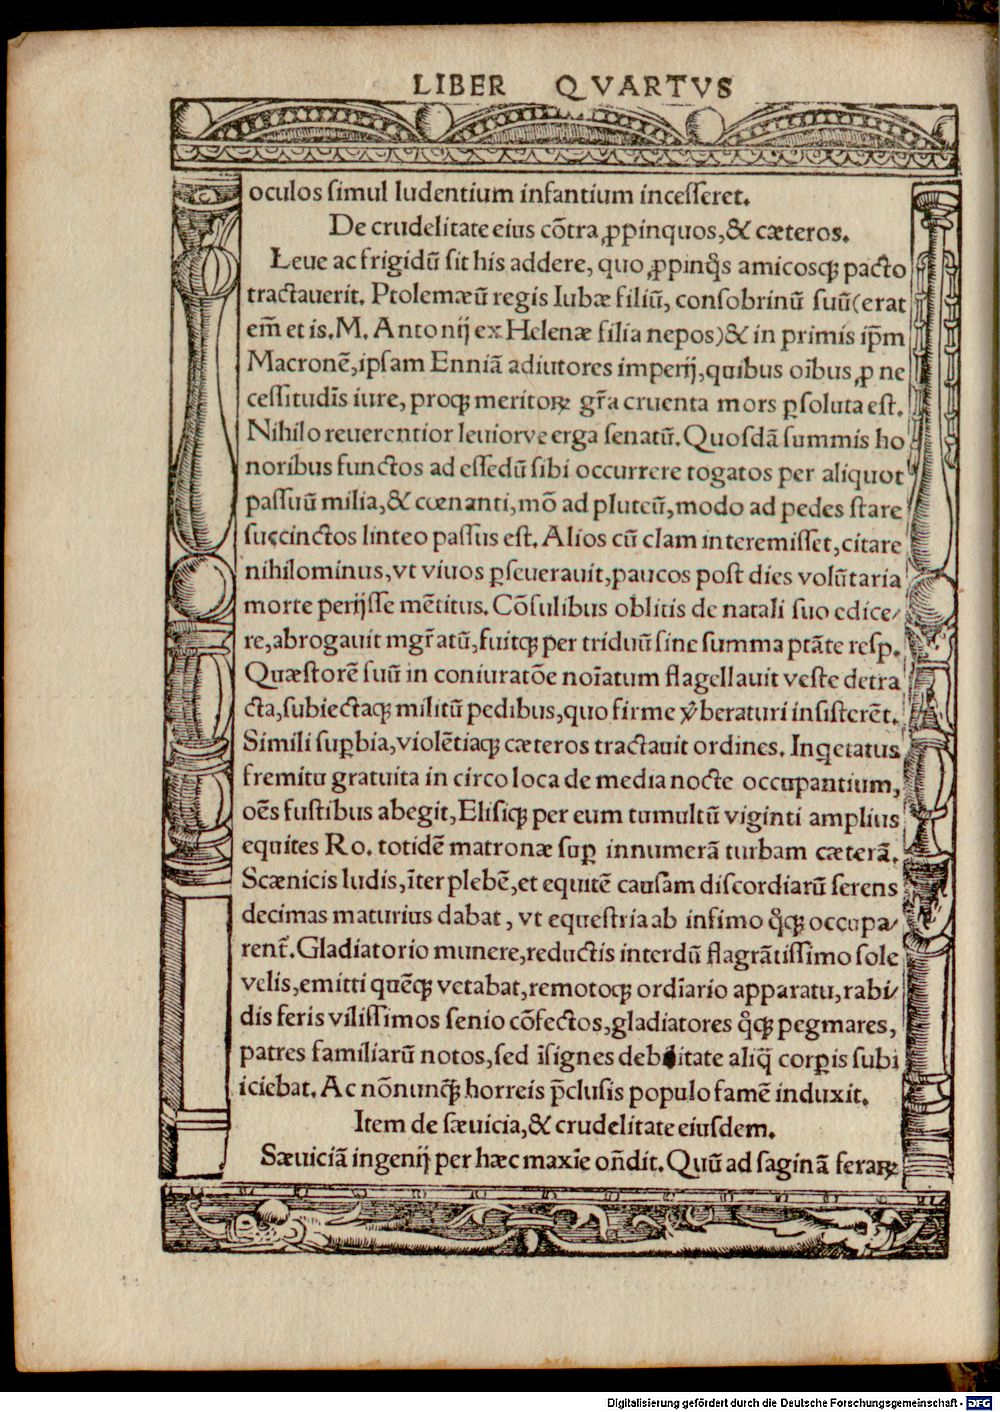 LIBER QVARTVS
oculos simul ludentium infantium incesseret.
De crudelitate eius cõtra ꝓpinquos,& cæteros.
Leue ac frigidũ sit his addere, quo ꝓpinq̃s amicosq; pacto
tractauerit. Ptolemæũ regis Iubæ filiũ, consobrinũ suũ(erat
em̃ et is.M. Antonij ex Helenæ filia nepos)& in primis ip̃m
Macronẽ,ipsam Enniã adiutores imperij,quibus oĩbus,ꝓ ne
cessitudĩs iure, proq; meritoꝝ gr̃a cruenta mors ꝑsoluta est.
Nihilo reuerentior leuiorve erga senatũ.Quosdã summis ho
noribus functos ad essedũ sibi occurrere togatos per aliquot
passuũ milia,& cœnanti,mõ ad pluteũ,modo ad pedes stare
succinctos linteo passus est. Alios cũ clam interemisset,citare
nihilominus,vt viuos ꝑseuerauit,paucos post dies volũtaria
morte perijsse mẽtitus. Cõsulibus oblitis de natali suo edice/
re,abrogauit mgr̃atũ,fuitq; per triduũ sine summa ptãte resp.
Quæstorẽ suũ in coniuratõe noĩatum flagellauit veste detra
cta,subiectaq; militũ pedibus,quo firme v̾beraturi insisterẽt.
Simili suꝑbia,violẽtiaq; cæteros tractauit ordines. Inq̃etatus
fremitu gratuita in circo loca de media nocte occupantium,
oẽs fustibus abegit,Elisiq; per eum tumultũ viginti amplius
equites Ro. totidẽ matronæ suꝑ innumerã turbam cæterã.
Scænicis ludis,ĩter plebẽ,et equitẽ causam discordiarũ serens
decimas maturius dabat, vt equestria ab infimo q̊q; occupa/
rent̃.Gladiatorio munere,reductis interdũ flagrãtissimo sole
velis,emitti quẽq; vetabat,remotoq; ordĩario apparatu,rabi/
dis feris vilissimos senio cõfectos,gladiatores q̊q; pegmares,
patres familiarũ notos,sed ĩsignes debilitate aliq̃ corꝑis subi
iciebat. Ac nõnunq̃ horreis p̃clusis populo famẽ induxit.
Item de sæuicia,& crudelitate eiusdem.
Sæuiciã ingenij per hæc maxĩe oñdit. Quũ ad saginã feraꝝ
Digitalisierung gefördert durch die Deutsche Forschungsgemeinschaft - DFG